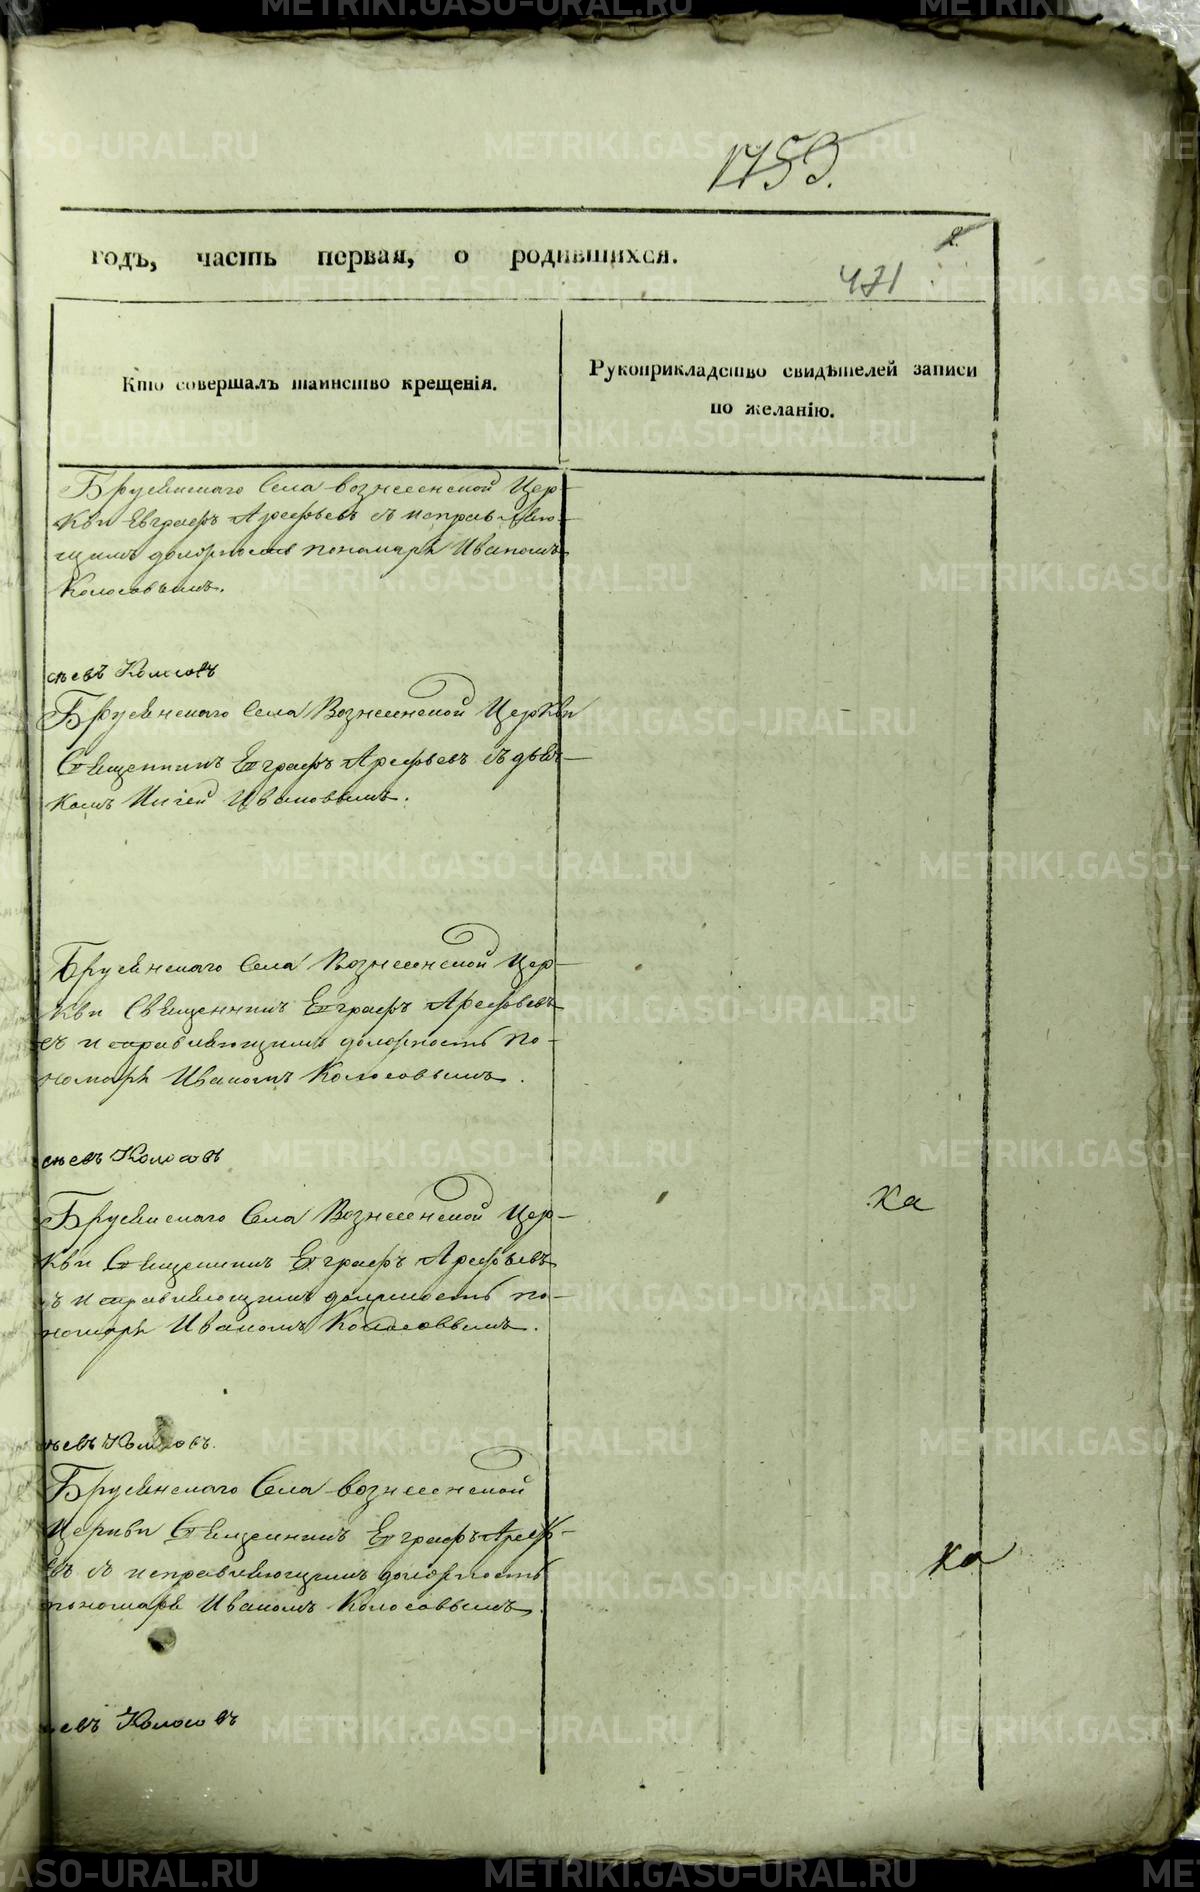 1759.
годъ, часть первая, о родившихся.
2.
471
Кто совершалъ таинство крещенія.
Рукоприкладство свидѣтелей записи по желанію.
Брусянскаго Села вознесенской Цер-
кви Евграфъ Арефьевъ съ исправляю-
щимъ должность пономаря Иваномъ
Колосовымъ.
Колосовъ
Брусянскаго Села Вознесенской Церкви
Священникъ Евграфъ Арефьевъ съ дьяч-
комъ Ивановымъ.
Брусянскаго Села Вознесенской Цер-
кви Священникъ Евграфъ Арефьевъ
съ исправляющимъ должность по-
номаря Иваномъ Колосовымъ.
Колосовъ
Брусянскаго Села Вознесенской Цер-
кви Священникъ Евграфъ Арефьевъ
съ исправляющимъ должность по-
номаря Иваномъ Колосовымъ.
ка
Колосовъ.
Брусянскаго Села вознесенской
Церкви Священникъ Евграфъ Ареф-
евъ съ исправляющимъ должность
пономаря Иваномъ Колосовымъ.
ка
Колосовъ
METRIKI.GASO-URAL.RU